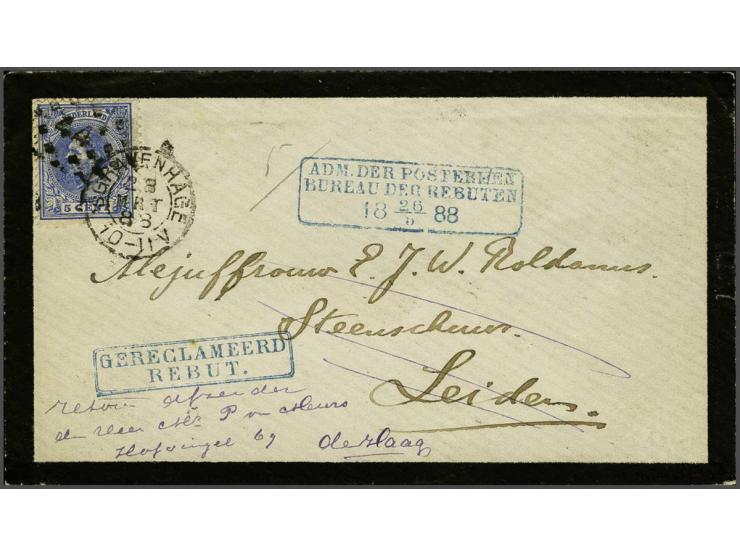 NEDERLAND
5 CENT
'S GRAVENHAGE
28
MRT
88
10-11V
ADM. DER POSTERIJEN
BUREAU DER REBUTEN
18 26/5 88
Mejuffrouw E. J. W. Roldanus.
Steenschuur.
Leiden.
GERECLAMEERD
REBUT.
retour afzender
den Heer Mr P van
Hofsingel 69 den Haag